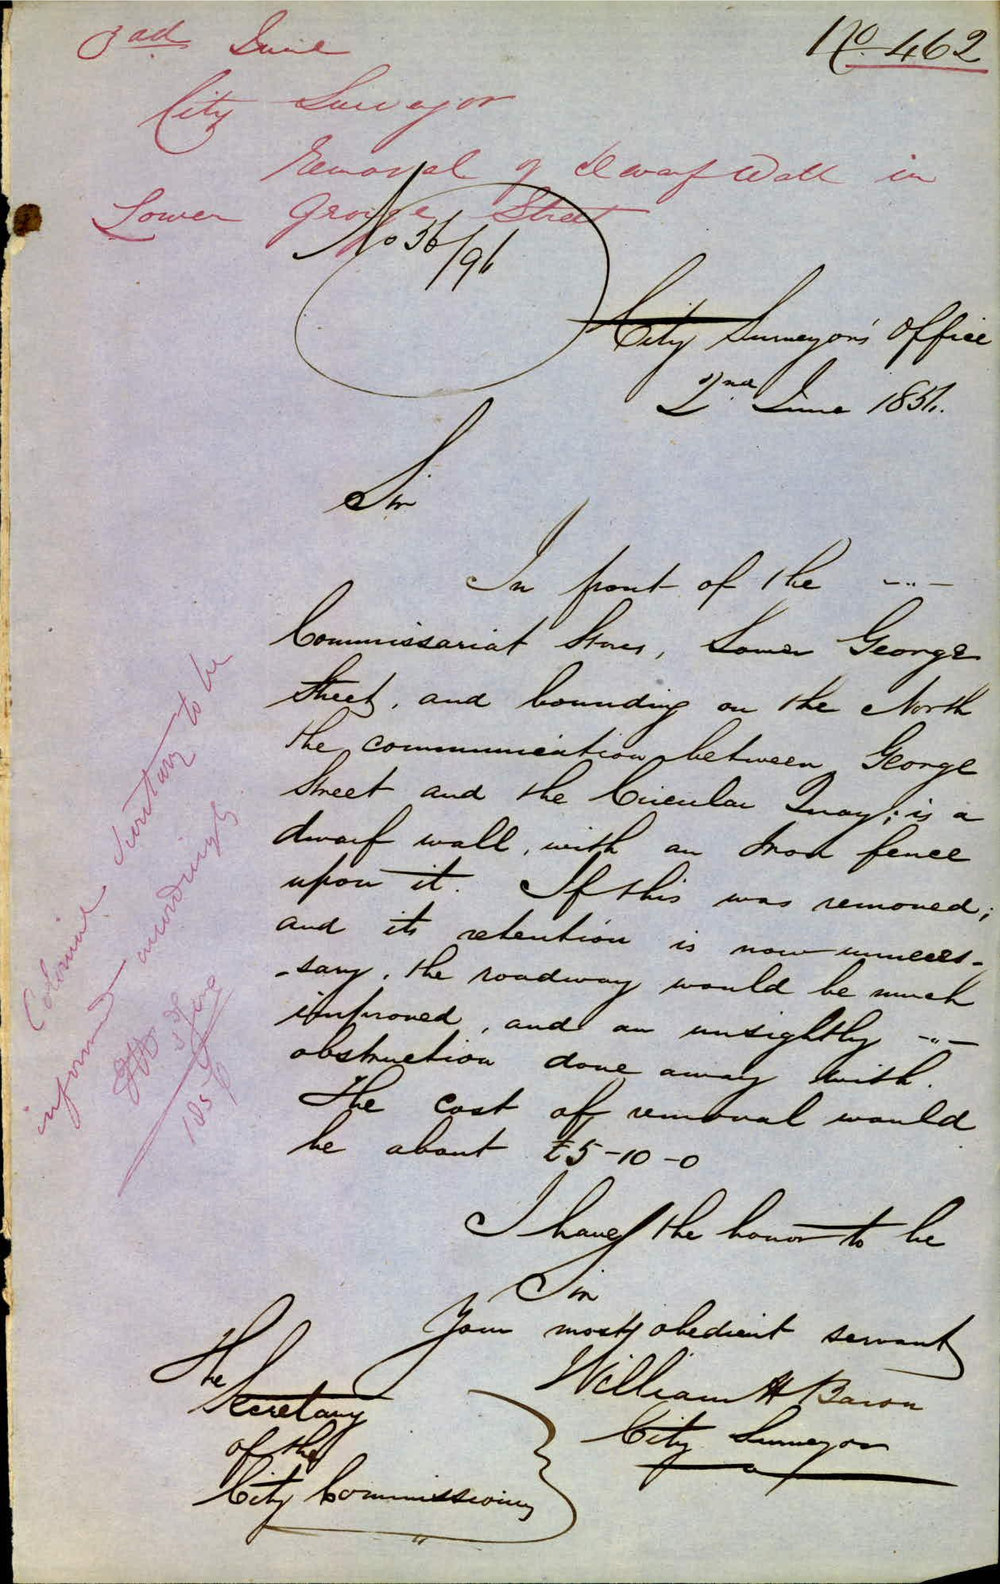 No 462
3rd June
City Surveyor
Removal of dwarf Wall in
Lower George Street
No 56/96
City Surveyor's Office
2nd June 1856.
Sir
In front of the
Commissariat Stores, Lower George
Street, and bounding on the North
the communication between George
Street and the Circular Quay; is a
dwarf wall, with an Iron fence
upon it. If this was removed;
and its retention is now unneces-
-sary, the roadway would be much
improved, and an unsightly
obstruction done away with.
The cost of removal would
be about £5-10-0
I have the honor to be
Sir
Your most obedient servant
William H Baron
City Surveyor
The
Secretary
of the
City Commissioners
Colonial Secretary to be
informed accordingly
3 June